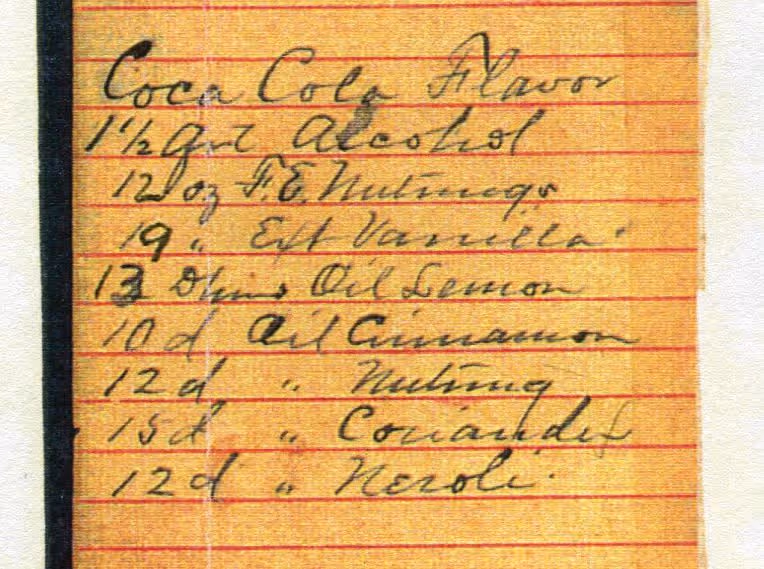 Coca Cola Flavor
1 1/2 Qrt Alcohol
12 oz F.E. Nutmegs
19 " Ext Vanilla
13 Oil Lemon
10 d Oil Cinnamon
12 d " Nutmeg
15 d " Coriander
12 d " Neroli